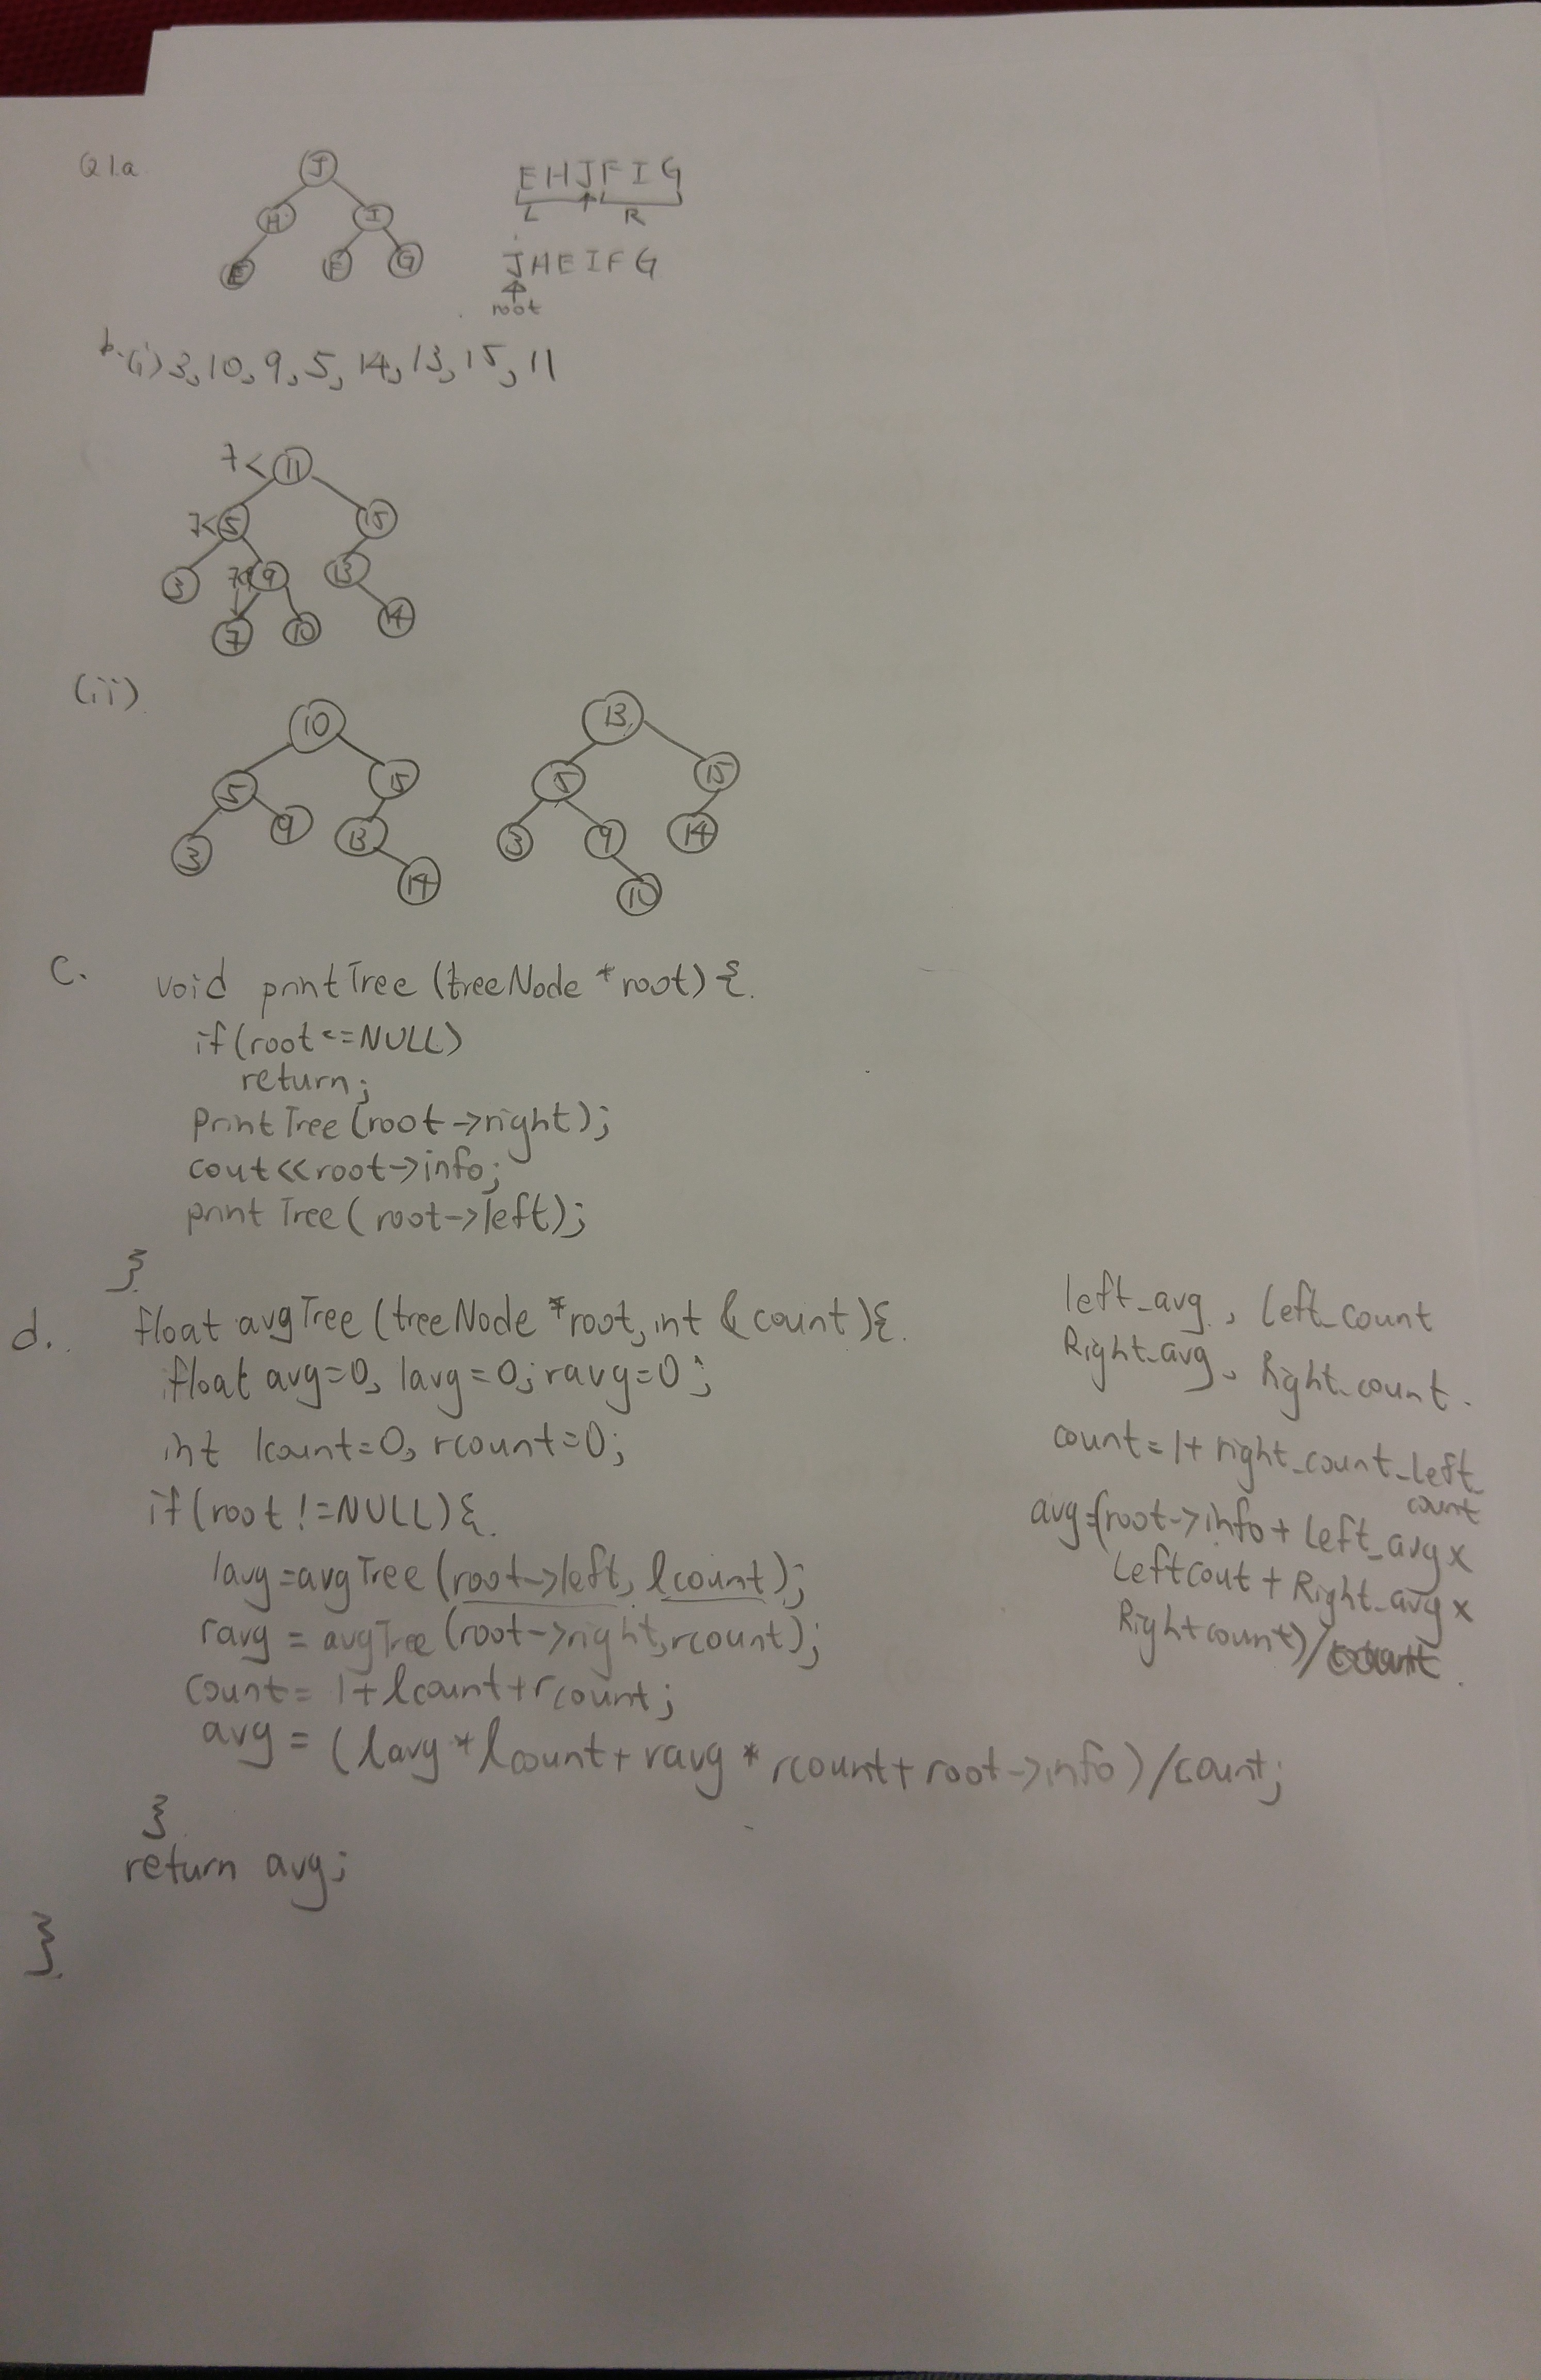 Q1.a
J
H I
E F G
EHJFIG
L R
JHEIFG
root
b.(i) 3, 10, 9, 5, 14, 13, 15, 11
7< 11
7< 5 15
3 9 13
7 10 14
(ii)
10
5 15
3 9 13
14
13
5 15
3 9 14
10
c. void printTree (treeNode *root) {
if(root ==NULL)
return;
printTree (root->right);
cout<<root->info;
printTree (root->left);
}
d. float avgTree (treeNode *root, int &count){
float avg=0, lavg=0; ravg=0;
int lcount=0, rcount=0;
if(root !=NULL){
lavg=avgTree (root->left, lcount);
ravg = avgTree (root->right, rcount);
count= 1+lcount+rcount;
avg = (lavg*lcount+ravg * rcount+root->info)/count;
}
return avg;
}
left_avg, left_count
Right_avg, Right_count.
count=1+ right_count_left_
count
avg=(root->info+left_avgx
Leftcout+Right_avgx
Rightcount)/count.